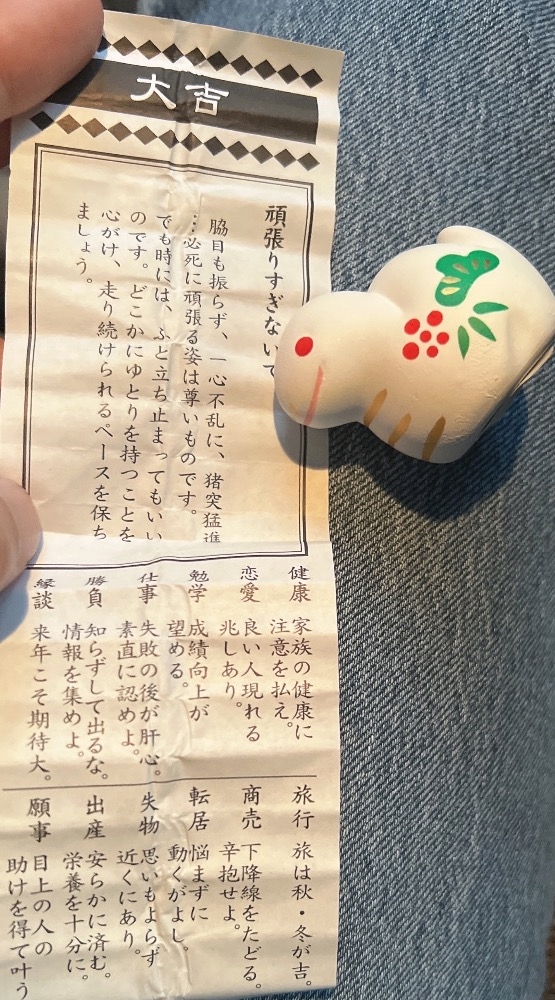 大吉
頑張りすぎないで
脇目も振らず、一心不乱に、猪突猛進
…必死に頑張る姿は尊いものです。
でも時には、ふと立ち止まってもいい
のです。どこかにゆとりを持つことを
心がけ、走り続けられるペースを保ち
ましょう。
健康
家族の健康に
注意を払え。
恋愛
良い人現れる
兆しあり。
勉学
成績向上が
望める。
仕事
失敗の後が肝心。
素直に認めよ。
勝負
知らずして出るな。
情報を集めよ。
縁談
来年こそ期待大。
旅行
旅は秋・冬が吉。
商売
下降線をたどる。
辛抱せよ。
転居
悩まずに
動くがよし。
失物
思いもよらず
近くにあり。
出産
安らかに済む。
栄養を十分に。
願事
目上の人の
助けを得て叶う